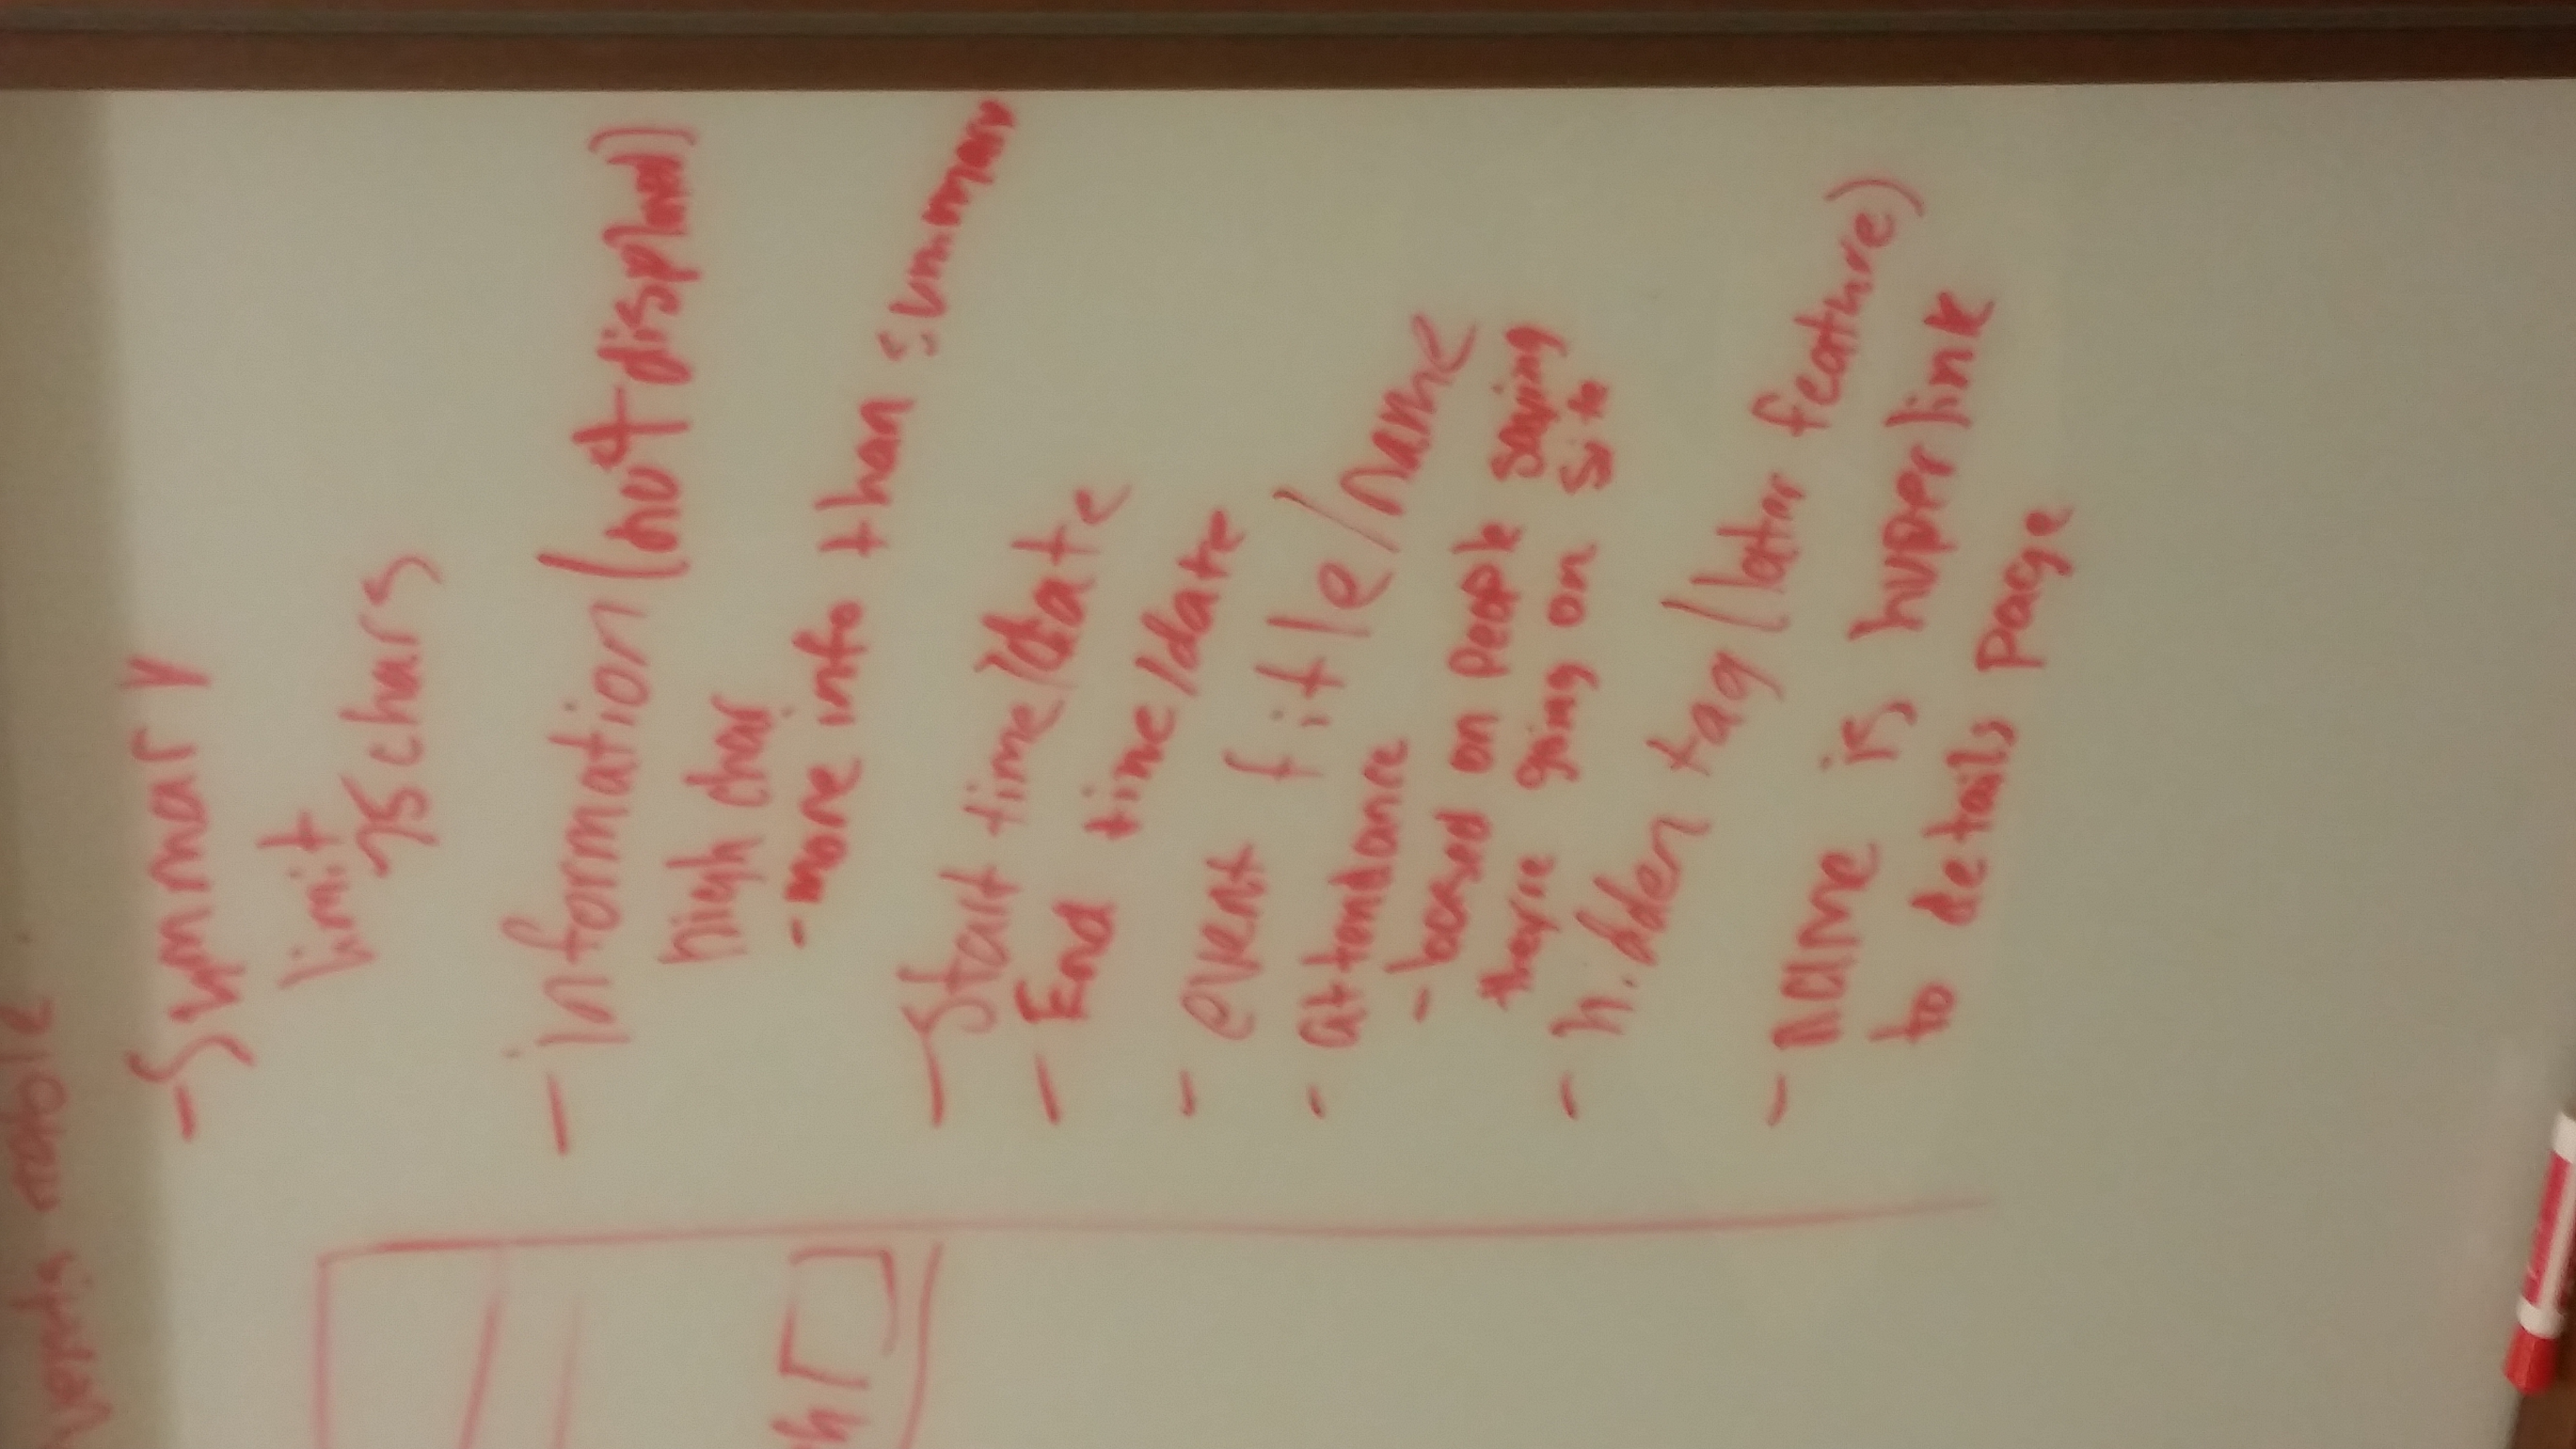 vents table
- Summary
limit
75 chars
- information (not displayed)
high char
- more info than summary
- Start time/date
- End time/date
- event title/name
- attendance
- based on people saying
they're going on site
- hidden tag (later feature)
- name is hyperlink
to details page
h